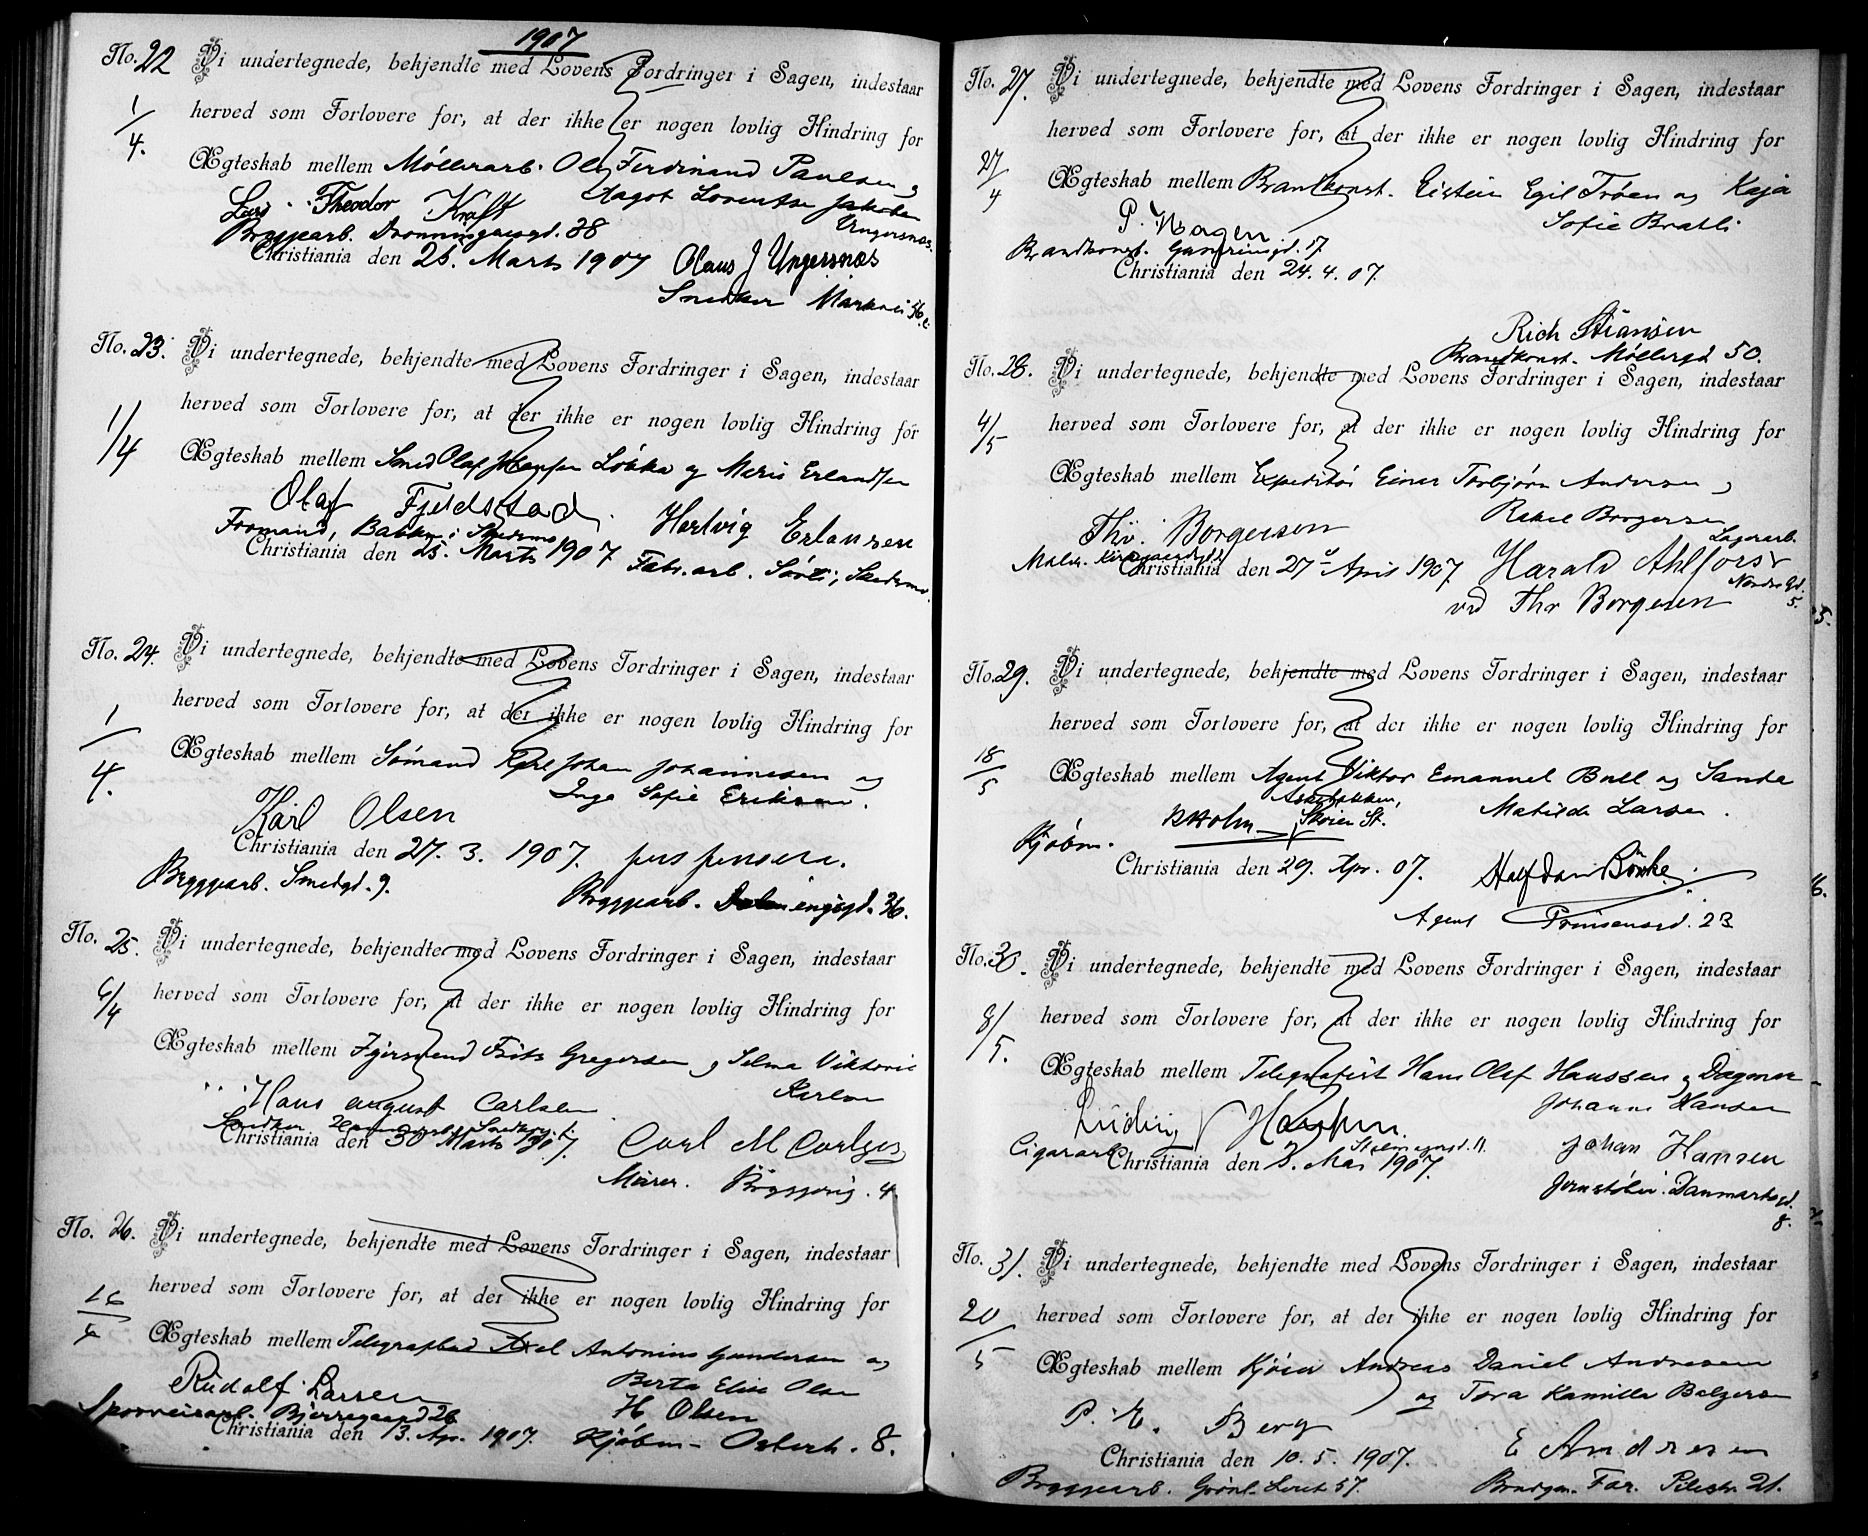 1907
No. 22 Vi undertegnede, bekjendte med Lovens Fordringer i Sagen, indestaar
herved som Forlovere for, at der ikke er nogen lovlig Hindring for
1/4.
Ægteskab mellem Møllerarb. Ole Ferdinand Paulsen og
Dagot Lorentse Jakobea
Ungersnæs.
Lars Theodor Kraft
Bryggearb. Dronningensgd. 38
Christiania den 25. Marts 1907 Olaus J Ungersnæs
Snedker Markvei 56
No. 23. Vi undertegnede, bekjendte med Lovens Fordringer i Sagen, indestaar
herved som Forlovere for, at der ikke er nogen lovlig Hindring for
1/4
Ægteskab mellem Smed Olaf Løkke og Marie Erlandsen
Olaf Fjeldstad. Hartvig Erlansen
Formand, Bakken i Skedsmo
Christiania den 25. Marts 1907 Fabr.arb. Sørli, Skedsmo.
No. 24. Vi undertegnede, bekjendte med Lovens Fordringer i Sagen, indestaar
herved som Forlovere for, at der ikke er nogen lovlig Hindring for
1/4.
Ægteskab mellem Sømand Karl Johan Johannesen og
Inga Sofie Eriksen.
Karl Olsen
Christiania den 27. 3. 1907. Jens Jensen.
Bryggearb. Smedgd. 9.
Bryggearb. engsgd. 36.
No. 25. Vi undertegnede, bekjendte med Lovens Fordringer i Sagen, indestaar
herved som Forlovere for, at der ikke er nogen lovlig Hindring for
6/4
Ægteskab mellem Fyrsvend Frits Gregersen og Selma Viktoria
Karlson
Hans august Carlsen
Snedker
Christiania den 30 Marts 1907. Carl M Carlsen
Murer. Bryggerig. 4
No. 26. Vi undertegnede, bekjendte med Lovens Fordringer i Sagen, indestaar
herved som Forlovere for, at der ikke er nogen lovlig Hindring for
16/4
Ægteskab mellem Telegrafbud Axel Antonius Gundersen og
Berta Elise Olsen
Rudolf Larsen
H Olsen
Sporveisarb. Bjerregaard 26
Christiania den 13. Ap. 1907. Kjøbm. Osterh. 8.
No. 27. Vi undertegnede, bekjendte med Lovens Fordringer i Sagen, indestaar
herved som Forlovere for, at der ikke er nogen lovlig Hindring for
27/4
Ægteskab mellem Brandkonst. Eistein Egil Trøen og Kaja
Sofie Bratli
P. Hagen
Brandkonst. 17
Christiania den 24. 4. 07.
Rich Stiansen
Brandkonst. Møllergd 50.
No. 28. Vi undertegnede, bekjendte med Lovens Fordringer i Sagen, indestaar
herved som Forlovere for, at der ikke er nogen lovlig Hindring for
4/5
Ægteskab mellem Expeditør Einar Torbjørn Andersen og
Rakel Borgersen
Thv. Borgersen
Lagerarb.
Christiania den 27 April 1907 Harald Ahlfors
Nordre Gd. 5.
ved Thv Borgersen
No. 29. Vi undertegnede, bekjendte med Lovens Fordringer i Sagen, indestaar
herved som Forlovere for, at der ikke er nogen lovlig Hindring for
18/5
Ægteskab mellem Agent Viktor Emanuel Bull og Sanda
Matilde Larsen.
Askebakken,
Skøien St.
Kjøbm.
Christiania den 29. Apr. 07. Halfdan Bönke.
Agent Prinsensgd. 23
No. 30. Vi undertegnede, bekjendte med Lovens Fordringer i Sagen, indestaar
herved som Forlovere for, at der ikke er nogen lovlig Hindring for
8/5.
Ægteskab mellem Telegrafist Hans Olaf Hanssen og Dagmar
Johanne Hansen
Ludvig
Cigararb.
Christiania den 3. Mai 1907. Johan Hansen
Jernstøber. Danmarksgd.
8.
No. 31. Vi undertegnede, bekjendte med Lovens Fordringer i Sagen, indestaar
herved som Forlovere for, at der ikke er nogen lovlig Hindring for
20/5
Ægteskab mellem Kjører Andreas Daniel Andresen
og Tora Kamilla Balgerson
P. E. Berg
Christiania den 10. 5. 1907. E Andresen
Bryggearb. Grønl. Leret 57. Brolgn. Far. Pilestr. 21.